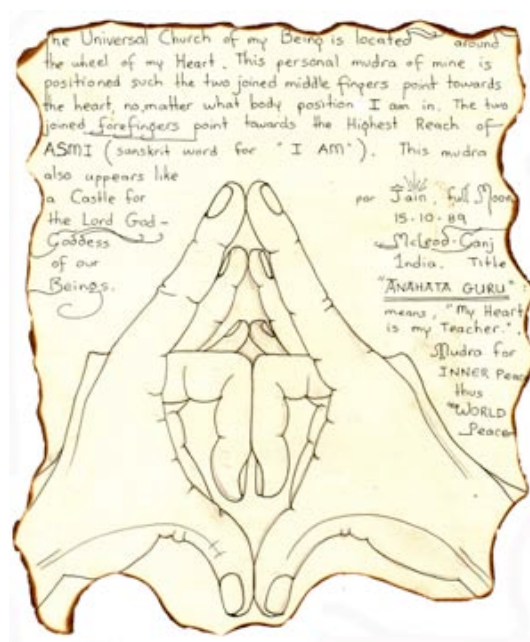 The Universal Church of my Being is located around
the wheel of my Heart. This personal mudra of mine is
positioned such the two joined middle fingers point towards
the heart, no matter what body position I am in. The two
joined forefingers point towards the Highest Reach of
ASMI (sanskrit word for "I AM"). This mudra
also appears like
a Castle for
the Lord God-
Goddess
of our
Beings.
par Jain, full Moon
15-10-89
McLeod-Ganj
India. Title
"ANAHATA GURU":
means, "My Heart
is my Teacher."
Mudra for
INNER Peace
thus
WORLD
Peace